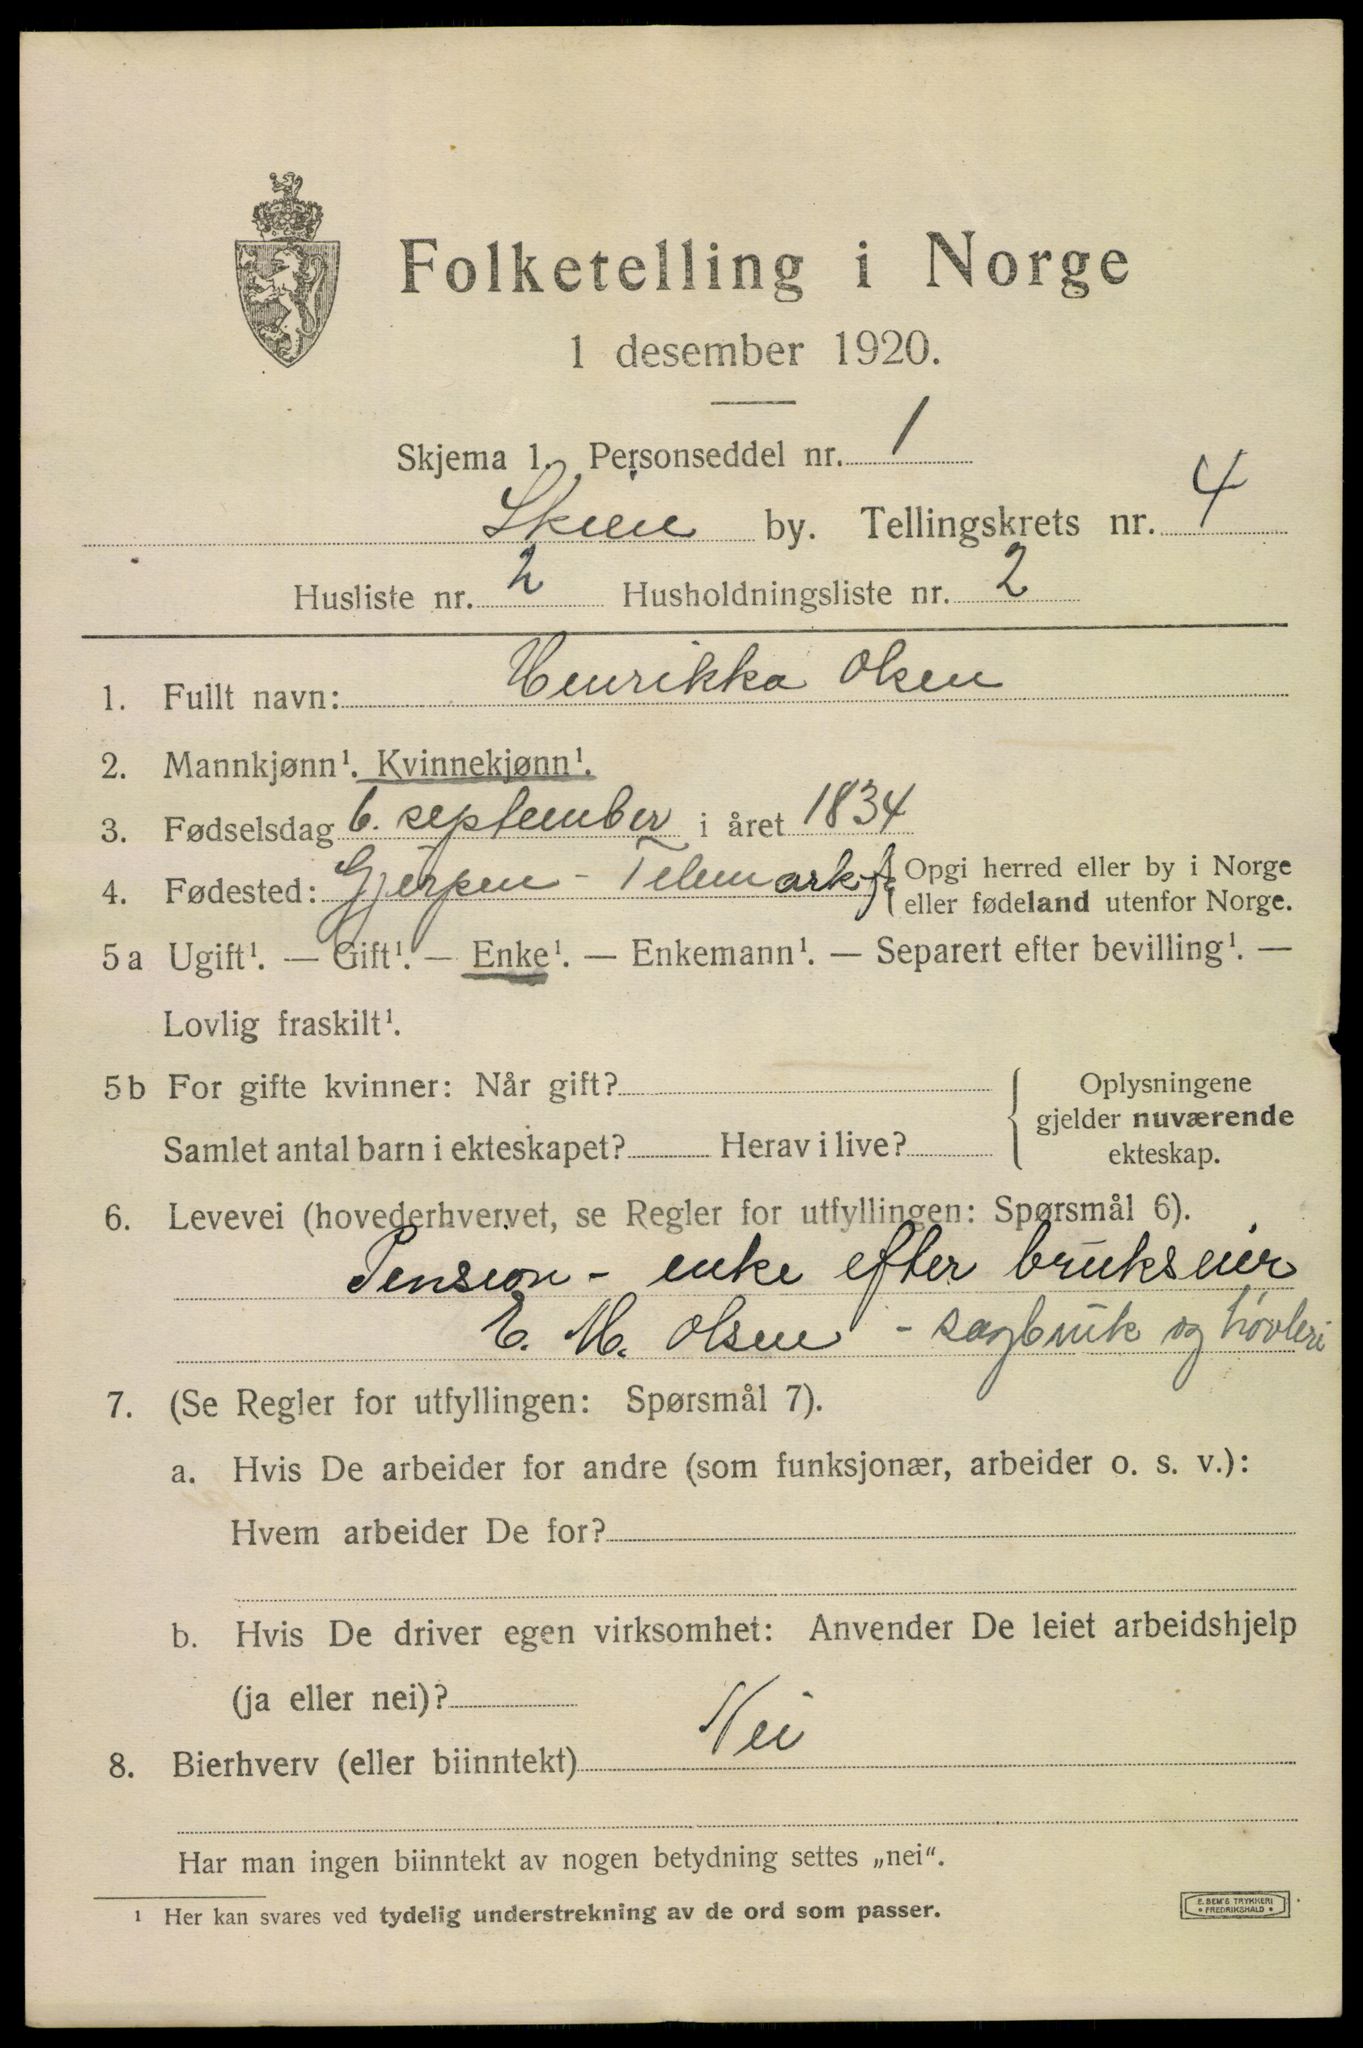 Folketelling i Norge
1 desember 1920.
Skjema 1. Personseddel nr. 1
Skien by. Tellingskrets nr. 4
Husliste nr. 2 Husholdningsliste nr. 2
1. Fullt navn: Henrikka Olsen
2. Mannkjønn¹. Kvinnekjønn¹.
3. Fødselsdag 6. september i året 1834
4. Fødested: Gjerpen - Telemark f. { Opgi herred eller by i Norge
eller fødeland utenfor Norge.
5a Ugift¹. — Gift¹. — Enke¹. — Enkemann¹. — Separert efter bevilling¹. —
Lovlig fraskilt¹.
5b For gifte kvinner: Når gift? { Oplysningene
gjelder nuværende
Samlet antal barn i ekteskapet? Herav i live? ekteskap.
6. Levevei (hovederhvervet, se Regler for utfyllingen: Spørsmål 6).
Pension - enke efter brukseier
E. M. Olsen - sagbruk og høvleri
7. (Se Regler for utfyllingen: Spørsmål 7).
a. Hvis De arbeider for andre (som funksjonær, arbeider o. s. v.):
Hvem arbeider De for?
b. Hvis De driver egen virksomhet: Anvender De leiet arbeidshjelp
(ja eller nei)?
8. Bierhverv (eller biinntekt) Nei
Har man ingen biinntekt av nogen betydning settes „nei".
¹ Her kan svares ved tydelig understrekning av de ord som passer.
E. SEM'S TRYKKERI
• FREDRIKSHALD •